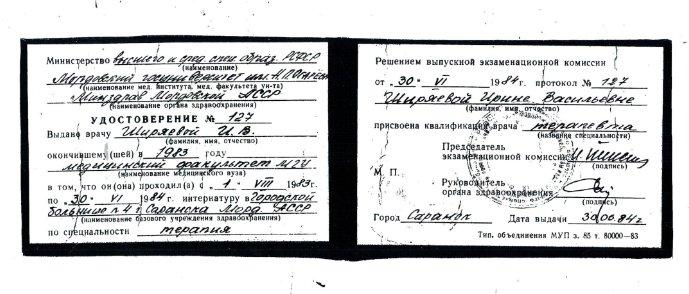 Министерство высшего и сред спец образ. РСФСР
(наименование)
Мордовский госуниверситет им. Н.П. Огарёва
(наименование мед. института, мед. факультета ун-та)
Минздрав Мордовской АССР
(наименование органа здравоохранения)
УДОСТОВЕРЕНИЕ № 127
Выдано врачу Ширяевой И. В.
(фамилия, имя, отчество)
окончившему (шей) в 1983 году
медицинский факультет МГУ
(наименование медицинского вуза)
в том, что он (она) проходил (а) с 1. VIII 1983 г.
по 30. VI 1984 г. интернатуру в городской
больнице п.4 г. Саранска Морд. АССР
(наименование базового учреждения здравоохранения)
по специальности терапия
Решением выпускной экзаменационной комиссии
от 30. VI 1984 г. протокол № 127
Ширяевой Ирине Васильевне
(фамилия, имя, отчество)
присвоена квалификация врача терапевта
(название специальности)
Председатель
экзаменационной комиссии
(подпись)
М. П.
Руководитель
органа здравоохранения
(подпись)
Город Саранск Дата выдачи 30.06.84 г.
Тип. объединения МУП з. 85 т. 80000—83